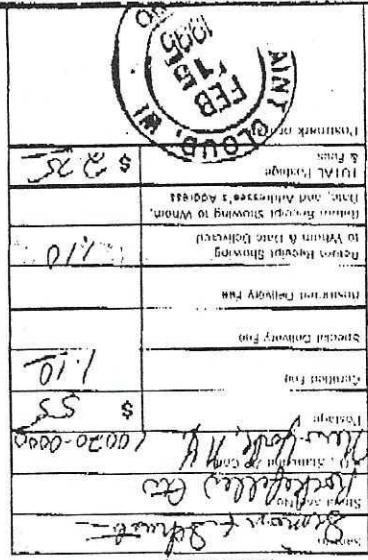 Sent to Simon & Schuster
Street and No. Rockefeller Ctr
P.O., State and ZIP Code New York, NY 10020-0000
Postage $ 55
Certified Fee 1.10
Special Delivery Fee
Restricted Delivery Fee
Return Receipt Showing
to Whom & Date Delivered 1.10
Return Receipt Showing to Whom,
Date, and Addressee's Address
TOTAL Postage
& Fees $ 2.75
Postmark or
AINT CLOUD, WI
FEB
15
1995